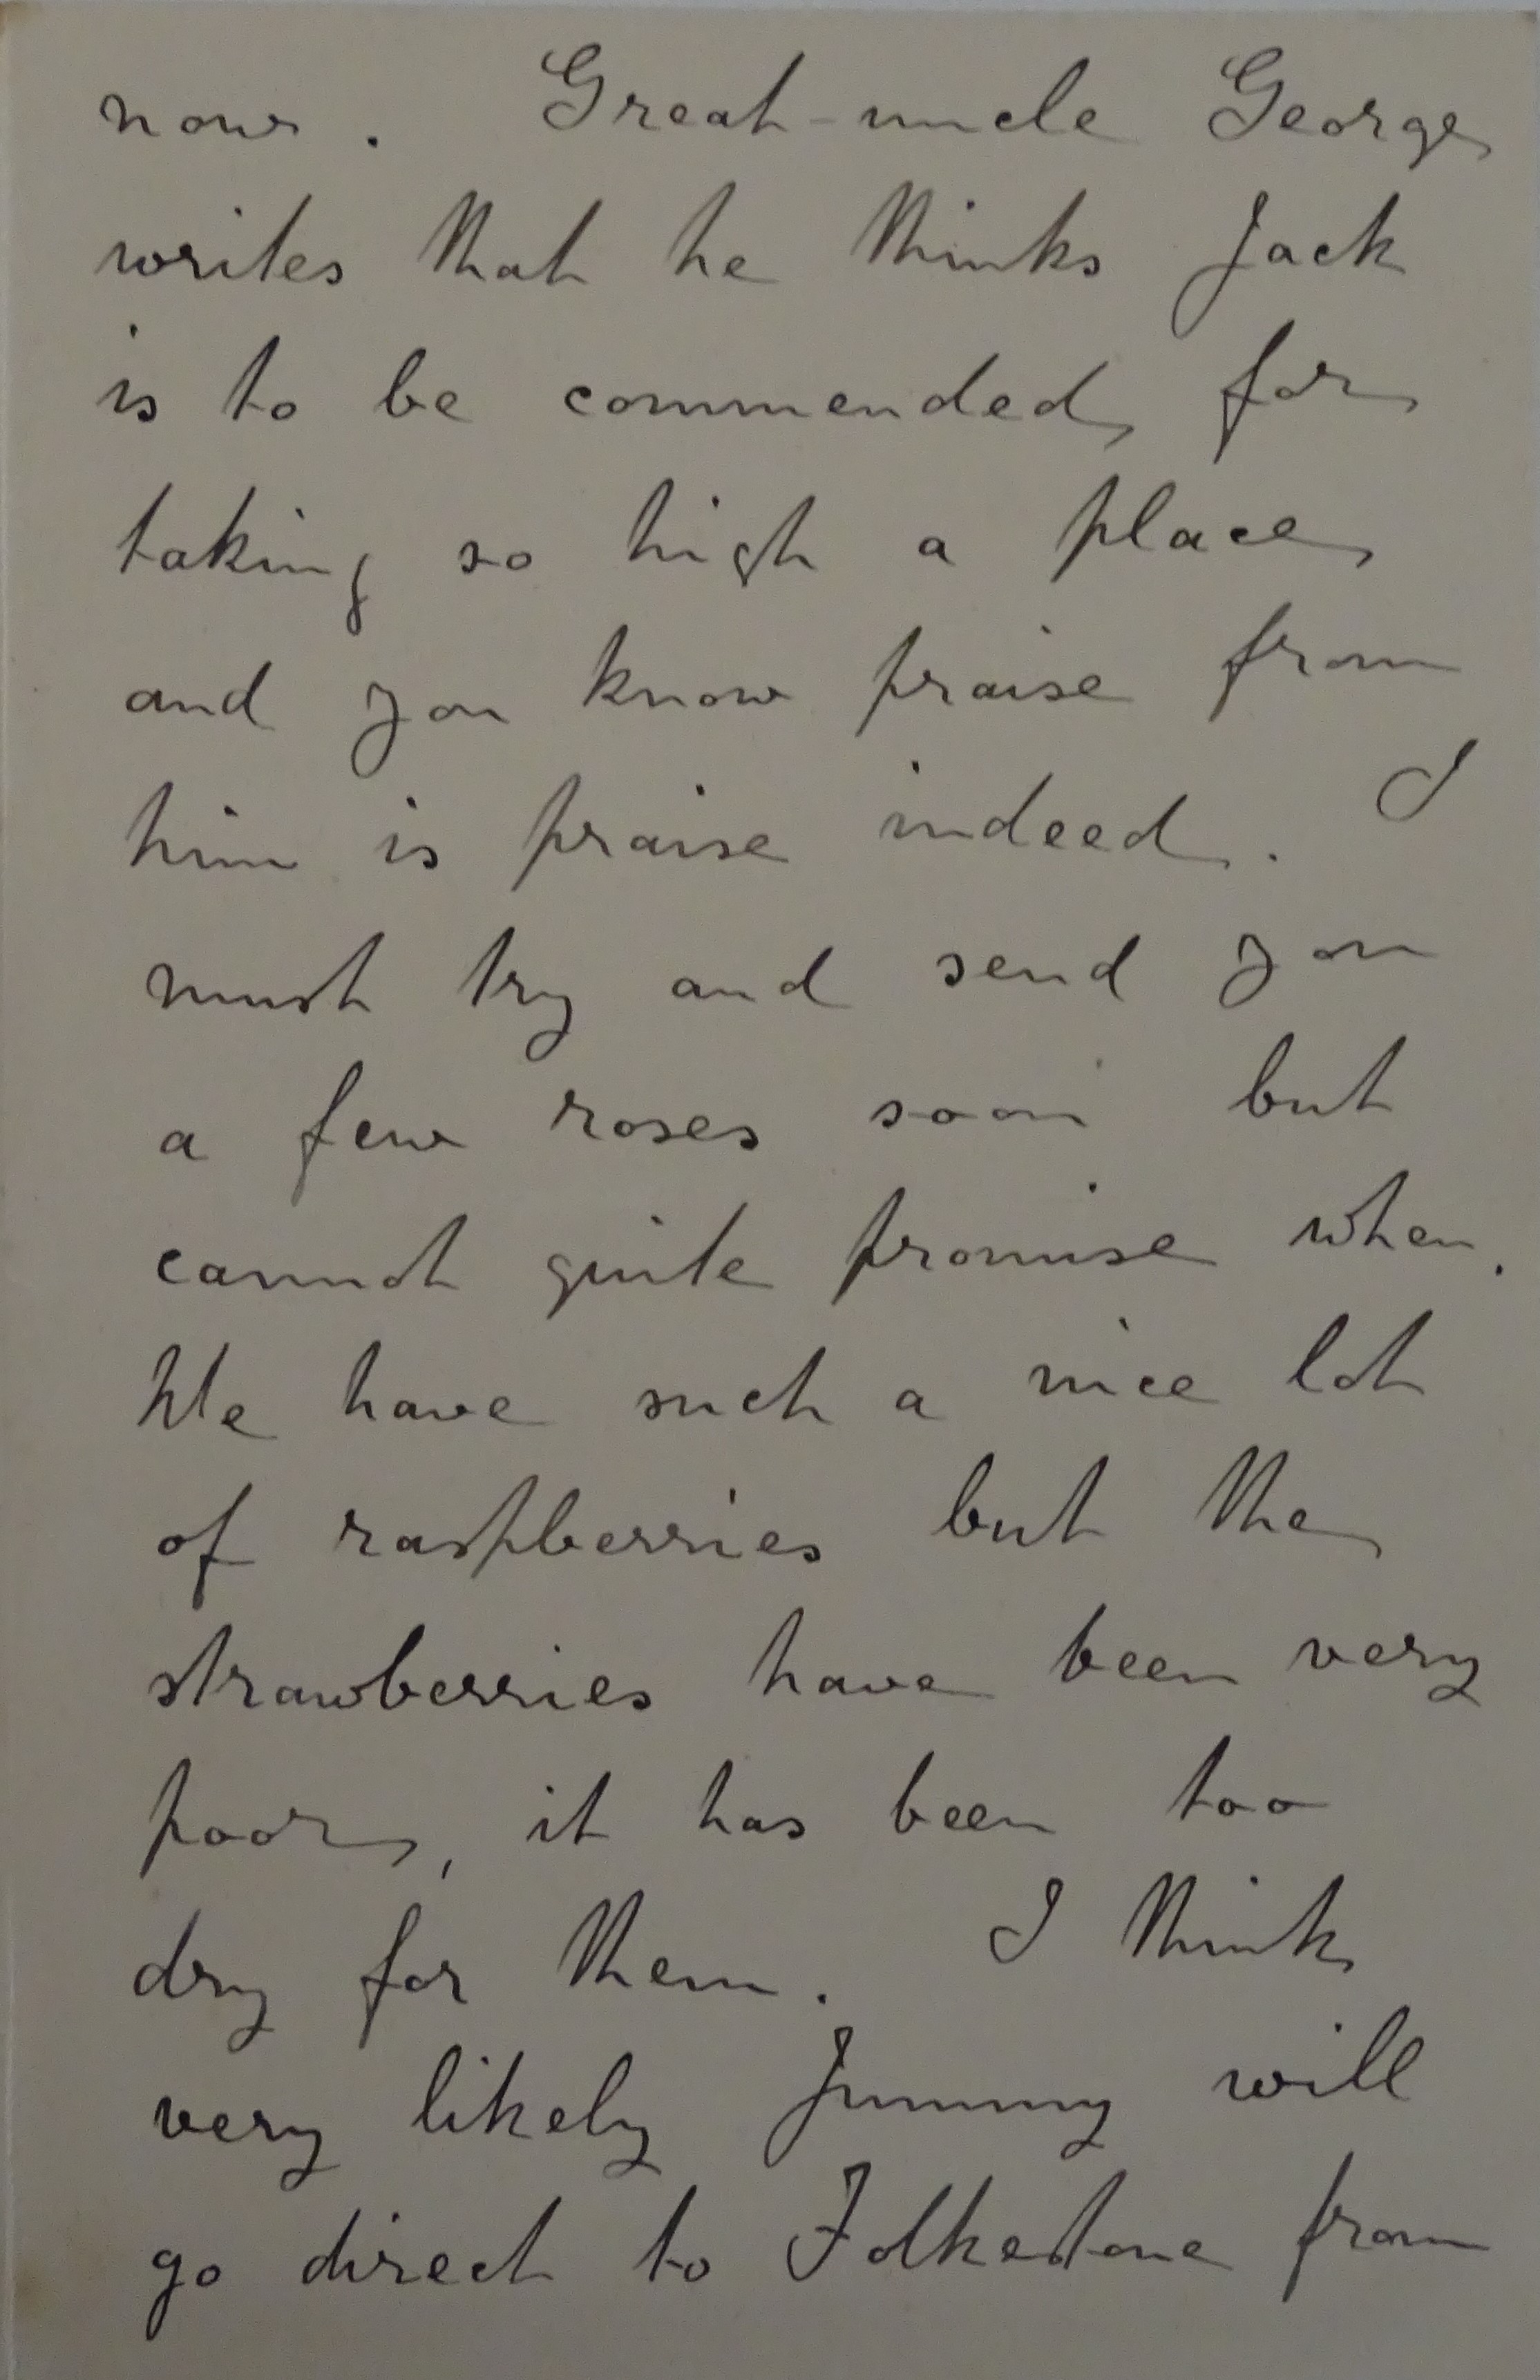 now. Great-uncle George
writes that he thinks Jack
is to be commended for
taking so high a place
and you know praise from
him is praise indeed. I
must try and send you
a few roses soon but
cannot quite promise when.
We have such a nice lot
of raspberries but the
strawberries have been very
poor, it has been too
dry for them. I think
very likely Jimmy will
go direct to Folkestone from